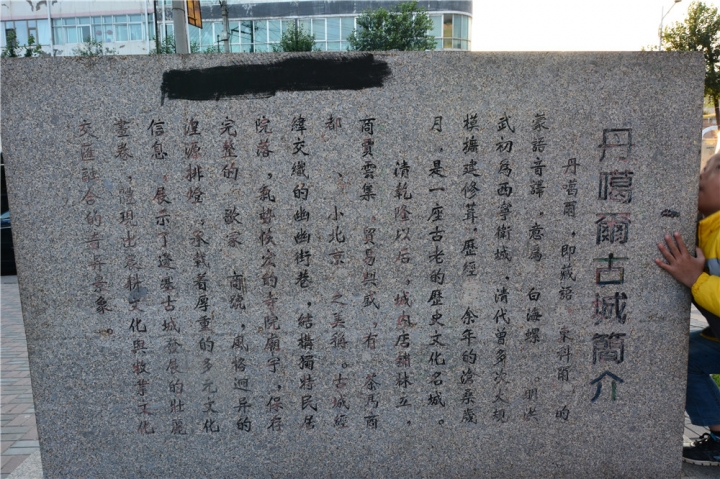 丹噶爾古城簡介
丹噶爾，即藏語 東科爾 的
蒙語音譯，意爲 白海螺 。明洪
武初爲西寧衛城，清代曾多次大規
模擴建修葺，歷經 余年的滄桑歲
月，是一座古老的歷史文化名城。
清乾隆以后，城内店鋪林立，
商賈雲集 貿易興盛，有 茶馬商
都 、 小北京 之美稱。古城經
緯交織的幽幽街巷，結構獨特民居
院落，氣勢恢宏的寺院廟宇，保存
完整的 歇家 商號，風格迥異的
湟源排燈，承載着厚重的多元文化
信息，展示了邊塞古城發展的壯麗
畫卷，體現出農耕文化與牧業文化
交匯融合的奇异景象。